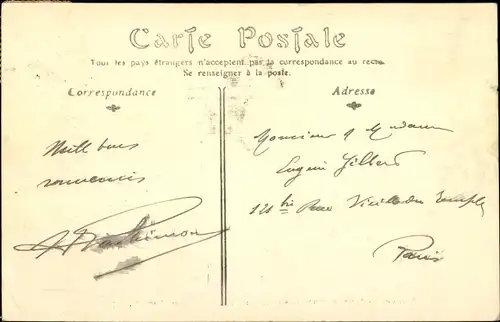 Carte Postale
Tous les pays étrangers n'acceptent pas la correspondance au recto
Se renseigner à la poste.
Correspondance
Adresse
Mille bons
souvenirs
Monsieur & Madame
Eugène Gilbert
121 bis Rue Vieille du Temple
Paris